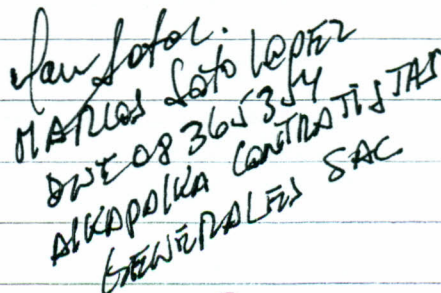 MARCOS Soto LOPEZ
DNI 08365354
CONTRATISTAS
GENERALES SAC